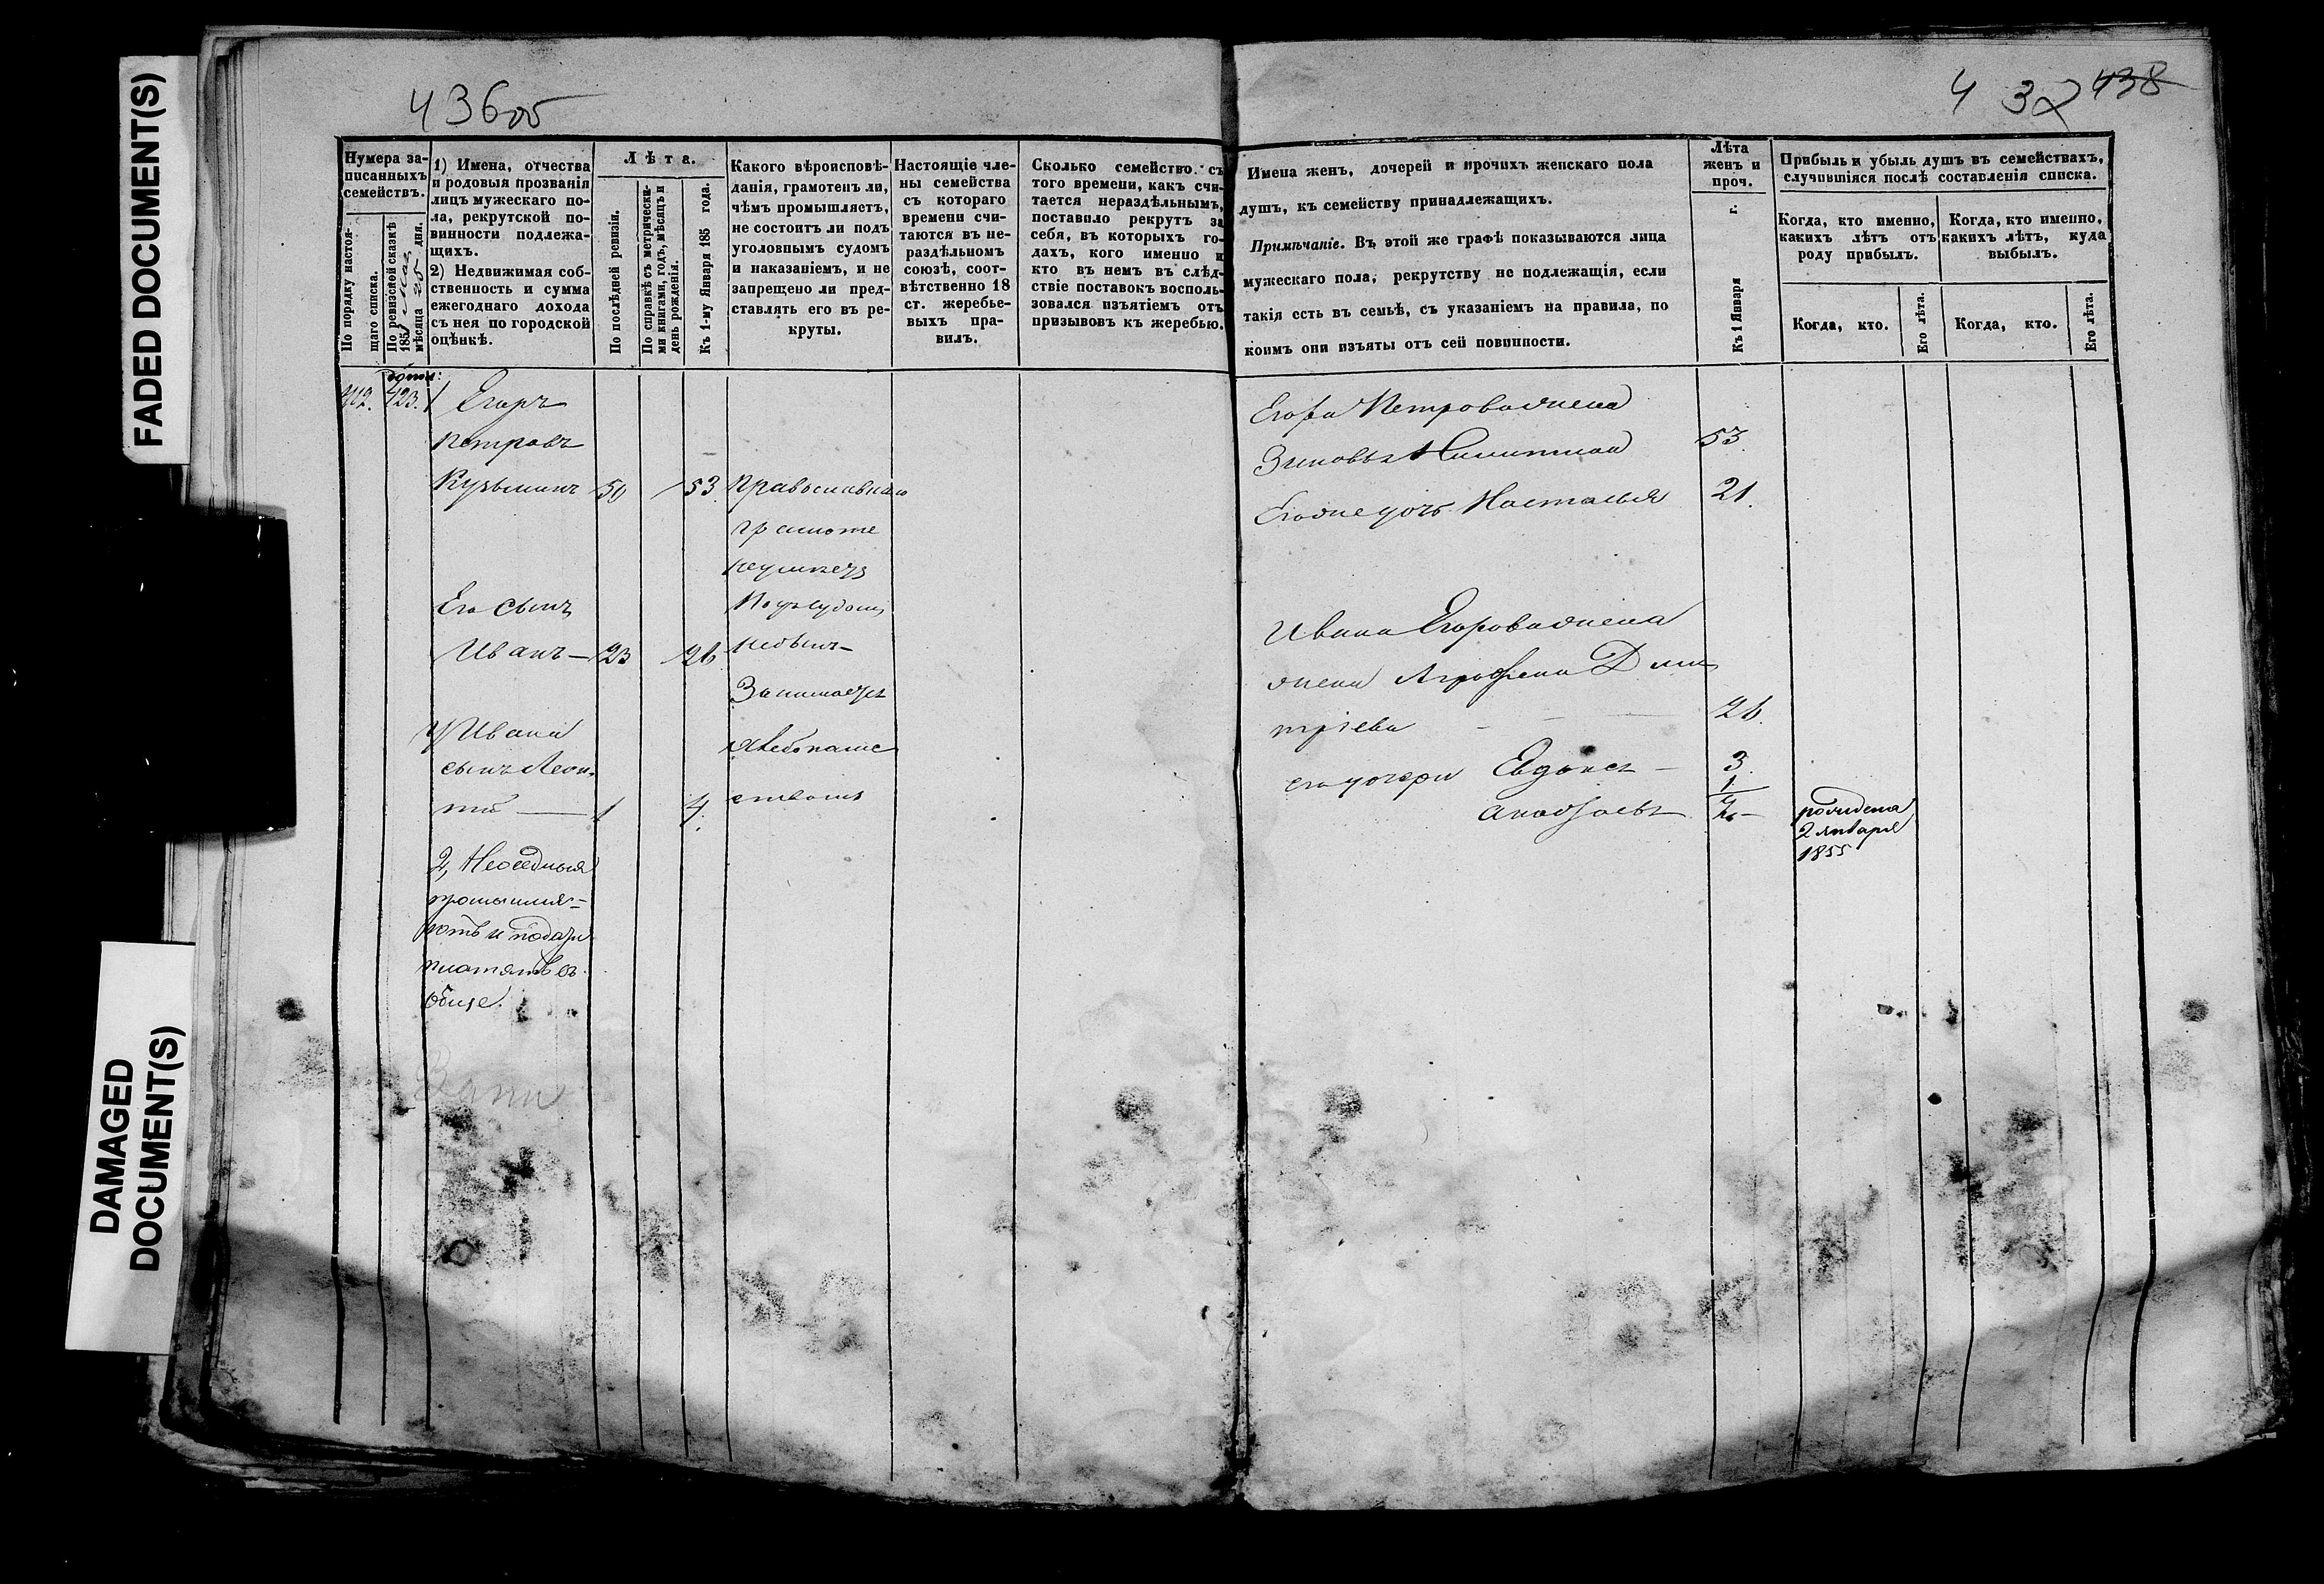 FADED DOCUMENT(S)
DAMAGED
DOCUMENT(S)
436об
438
Нумера за-
писанныхъ
семействъ.
По порядку настоя-
щаго списка.
По ревизской сказкѣ
185 года
мѣсяца дня.
1) Имена, отчества
и родовыя прозванія
лицъ мужескаго по-
ла, рекрутской по-
винности подлежа-
щихъ.
2) Недвижимая соб-
ственность и сумма
ежегоднаго дохода
съ нея по городской
оцѣнкѣ.
Лѣта.
По послѣдней ревизіи.
По справкѣ съ метрически-
ми книгами, годъ, мѣсяцъ и
день рожденія.
Къ 1-му Января 185 года.
Какого вѣроисповѣ-
данія, грамотенъ ли,
чѣмъ промышляетъ,
не состоитъ ли подъ
уголовнымъ судомъ
и наказаніемъ, и не
запрещено ли пред-
ставлять его въ ре-
круты.
Настоящіе чле-
ны семейства
съ котораго
времени счи-
таются въ не-
раздѣльномъ
союзѣ, соот-
вѣтственно 18
ст. жеребье-
выхъ пра-
вилъ.
Сколько семейство съ
того времени, какъ счи-
тается нераздѣльнымъ,
поставило рекрутъ за
себя, въ которыхъ го-
дахъ, кого именно и
кто въ немъ въ слѣд-
ствіе поставокъ восполь-
зовался изъятіемъ отъ
призывовъ къ жеребью.
Имена женъ, дочерей и прочихъ женскаго пола
душъ, къ семейству принадлежащихъ.
Примѣчаніе. Въ этой же графѣ показываются лица
мужескаго пола, рекрутству не подлежащія, если
такія есть въ семьѣ, съ указаніемъ на правила, по
коимъ они изъяты отъ сей повинности.
Лѣта
женъ и
проч.
Къ 1 Января г.
Прибыль и убыль душъ въ семействахъ,
случившіяся послѣ составленія списка.
Когда, кто именно,
какихъ лѣтъ отъ
роду прибылъ.
Когда, кто именно,
какихъ лѣтъ, куда
выбылъ.
Когда, кто.
Его лѣта.
Когда, кто.
Его лѣта.
423. 1 Егоръ
Петровъ
Кузьминъ 50 53 Православнаго
грамоте
неумѣетъ
Подъ судомъ
небылъ
Занимается
хлебопаше
ствомъ
Его сынъ
Иванъ — 23 26
У Ивана
сынъ Леон-
тій — 1 4
2, Неоседлыя
промышля-
ютъ и подати
платятъ въ
обще.
Егора Петрова жена
Зиновья Никитина 53
Его же дочь Настасья 21.
Ивана Егорова жена
Аграфена Дми
тріева 26.
его дочери Евдокея — 3.
рождена
2 января
1855